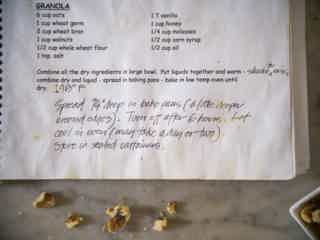 GRANOLA
6 cup oats
1 cup wheat germ
2 cup wheat bran
1 cup walnuts
1/2 cup whole wheat flour
1 tsp. salt
1 T vanilla
1 cup honey
1/4 cup molasses
1/2 cup corn syrup
1/2 cup oil
Combine all the dry ingredients in large bowl. Put liquids together and warm -
combine dry and liquid - spread in baking pans - bake in low temp oven until
dry.
Spread 3/4" deep in bake pans (a little deeper
around edges). Turn off after 6 hours. Let
cool in oven (may take a day or two).
Store in sealed containers.